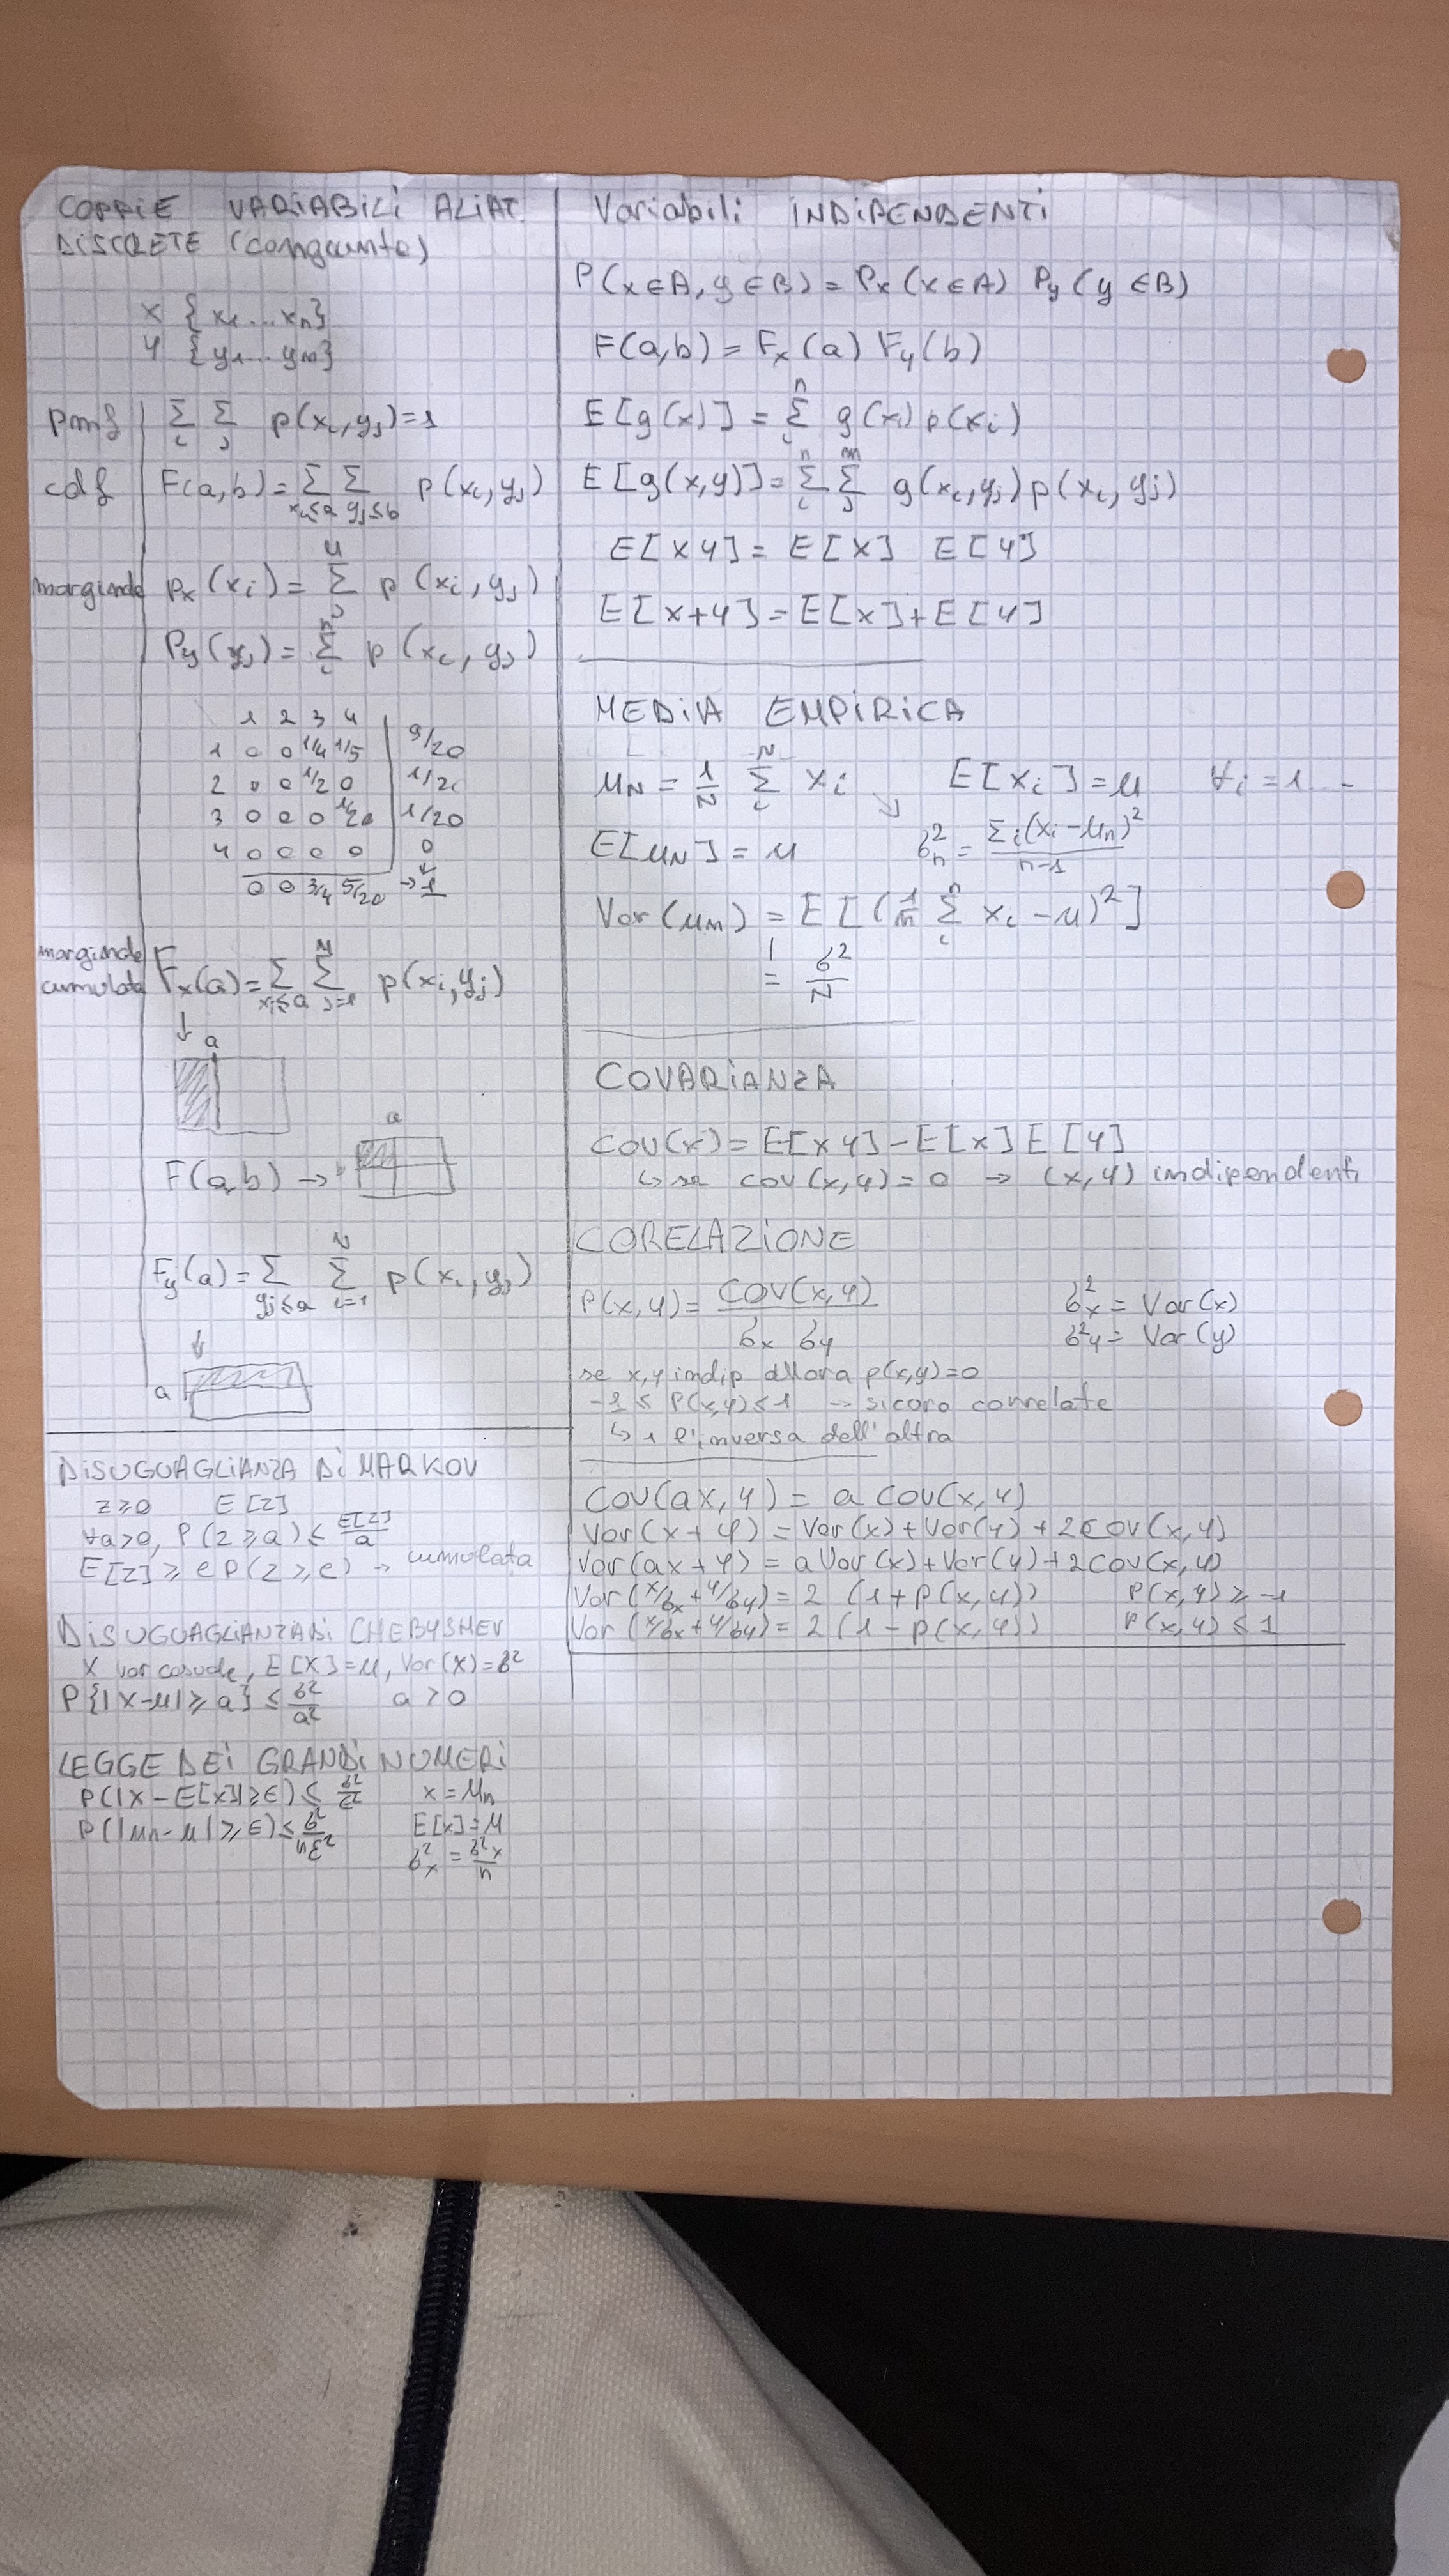 COPPIE VARIABILI ALIAT.
DISCRETE (congiunte)
X {x₁...xₙ}
Y {y₁...yₘ}
pmf Σᵢ Σⱼ p(xᵢ,yⱼ)=1
cdf F(a,b)= Σ_{xᵢ≤a} Σ_{yⱼ≤b} p(xᵢ,yⱼ)
marginale pₓ(xᵢ)= Σⱼ p(xᵢ,yⱼ)
P_y(yⱼ)= Σᵢ p(xᵢ,yⱼ)
1 2 3 4
1 0 0 1/4 1/5 9/20
2 0 0 1/20 0 1/20
3 0 0 0 1/20 1/20
4 0 0 0 0 0
0 0 3/4 5/20 → 1
marginale
cumulata Fₓ(a)= Σ_{xᵢ≤a} Σ_{j=1}^{M} p(xᵢ,yⱼ)
↓ a
a
F(a,b) →
F_y(a)= Σ_{yⱼ≤a} Σ_{i=1}^{N} p(xᵢ,yⱼ)
↓
a
DISUGUAGLIANZA DI MARKOV
z≥0 E[Z]
∀a>0, P(z≥a) ≤ E[Z]/a
E[Z] ≥ e P(z≥e) → cumulata
DISUGUAGLIANZA DI CHEBYSHEV
X var casuale, E[X]=μ, Var(X)=σ²
P{|X-μ|≥a} ≤ σ²/a² a>0
LEGGE DEI GRANDI NUMERI
P(|X-E[x]|≥ϵ) ≤ σ²/ε² x=μₙ
P(|μₙ-μ|≥ϵ) ≤ σ²/nε² E[x]=μ
σ²ₓ = σ²x/n
Variabili INDIPENDENTI
P(x∈A, y∈B)= Pₓ(x∈A) P_y(y∈B)
F(a,b)= Fₓ(a) F_y(b)
E[g(x)] = Σᵢⁿ g(xᵢ) p(xᵢ)
E[g(x,y)]= Σᵢⁿ Σⱼᵐ g(xᵢ,yⱼ) p(xᵢ,yⱼ)
E[XY]= E[X] E[Y]
E[X+Y]=E[X]+E[Y]
MEDIA EMPIRICA
μ_N = 1/N Σᵢᴺ xᵢ E[Xᵢ]=μ ∀i=1...
E[μ_N]=μ σ²ₙ = Σᵢ(xᵢ-μₙ)²/n-1
Var(μₙ) = E[(1/n Σᵢⁿ xᵢ-μ)²]
= σ²/N
COVARIANZA
COV(X)= E[XY]-E[X]E[Y]
↳ se cov(x,y)=0 → (x,y) indipendenti
CORELAZIONE
P(x,y)= COV(x,y)/σₓ σ_y σ²ₓ = Var(x)
σ²_y = Var(y)
se x,y indip allora ρ(x,y)=0
-1 ≤ P(x,y) ≤ 1 → sicoro correlate
↳ 1 l'inversa dell'altra
COV(ax,y) = a COV(x,y)
Var(x+y) = Var(x)+Var(y)+2COV(x,y)
Var(ax+y) = aVar(x)+Var(y)+2COV(x,y)
Var(x/σₓ+y/σ_y)= 2 (1+ρ(x,y)) P(x,y)≥-1
Var(x/σₓ+y/σ_y)= 2 (1-ρ(x,y)) P(x,y)≤1